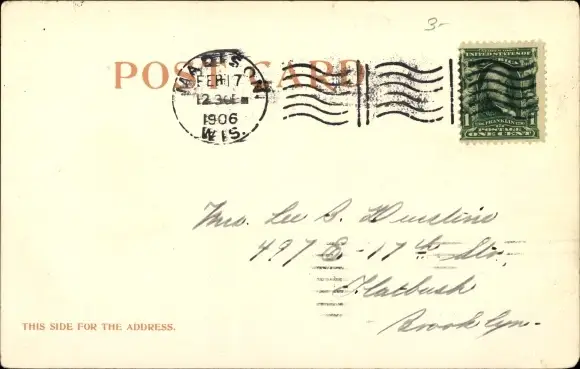 3-
POST CARD
MADISON, WIS.
FEB 17
12 30 PM
1906
UNITED STATES OF
FRANKLIN
1 POSTAGE 1
ONE CENT
Mrs. Lee S.
497 E-17th Str.
Flatbush
Brooklyn.
THIS SIDE FOR THE ADDRESS.